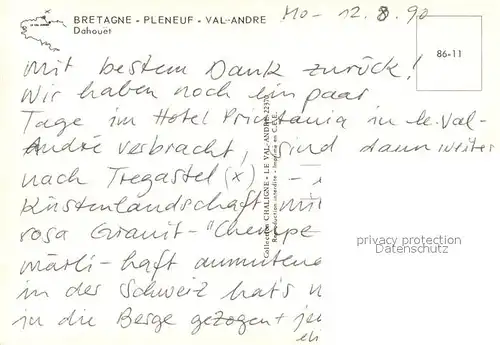 BRETAGNE - PLENEUF - VAL-ANDRE
Dahouët
Mo- 12. 8. 90
86-11
mit bestem Dank zurück!
Wir haben noch ein paar
Tage im Hotel Printania in le Val-
André verbracht, sind dann weiter
nach Tregastel (x) -
Küstenlandschaft mit
rosa Granit-"Chempe
märli-haft anmutene
in der Schweiz hat's
in die Berge gezogen +
Collection CHALIGNE - LE VAL-ANDRE 22370
Reproduction interdite - Imprimé en C.E.E.
privacy protection
Datenschutz